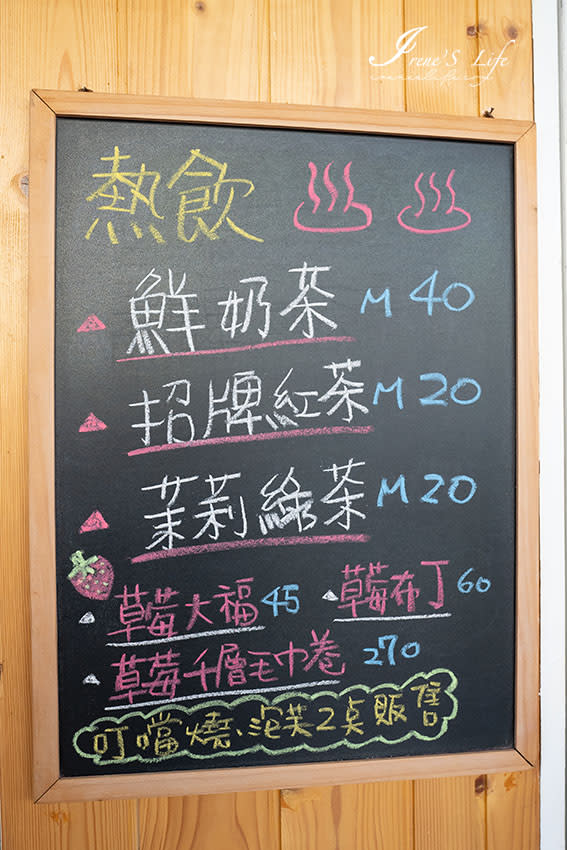 Irene'S Life
熱飲
鮮奶茶 M 40
招牌紅茶 M 20
茉莉綠茶 M 20
草莓大福 45 草莓布丁 60
草莓千層毛巾卷 270
叮噹燒、泡芙2桌販售